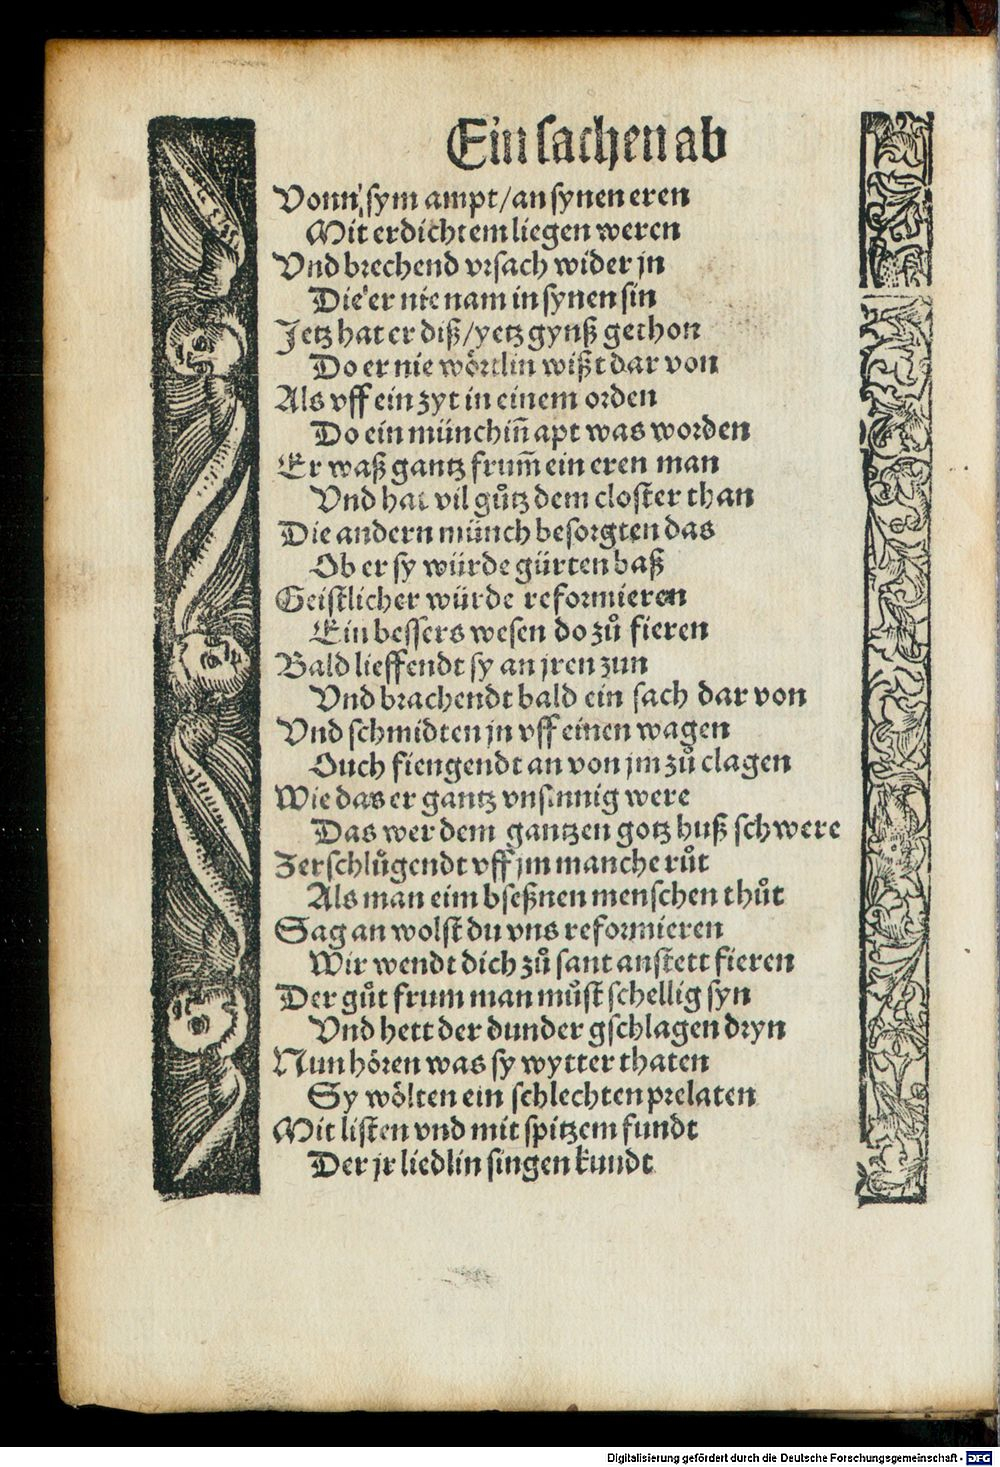 Ein sachen ab
Vonn sym ampt/an synen eren
Mit erdichtem liegen weren
Vnd brechend vrsach wider jn
Die er nie nam in synen sin
Jetz hat er diß/yetz gynß gethon
Do er nie wörtlin wißt dar von
Als vff ein zyt in einem orden
Do ein münchiñ apt was worden
Er waß gantz frum̃ ein eren man
Vnd hat vil gůtz dem closter than
Die andern münch besorgten das
Ob er sy würde gürten baß
Geistlicher würde reformieren
Ein bessers wesen do zů fieren
Bald lieffendt sy an jren zun
Vnd brachendt bald ein sach dar von
Vnd schmidten jn vff einen wagen
Ouch fiengendt an von jm zů clagen
Wie das er gantz vnsinnig were
Das wer dem gantzen gotz huß schwere
Zerschlůgendt vff jm manche růt
Als man eim bseßnen menschen thůt
Sag an wolst du vns reformieren
Wir wendt dich zů sant anstett fieren
Der gůt frum man můst schellig syn
Vnd hett der dunder gschlagen dryn
Nun hören was sy wytter thaten
Sy wölten ein schlechten prelaten
Mit listen vnd mit spitzem fundt
Der jr liedlin singen kundt
Digitalisierung gefördert durch die Deutsche Forschungsgemeinschaft - DFG